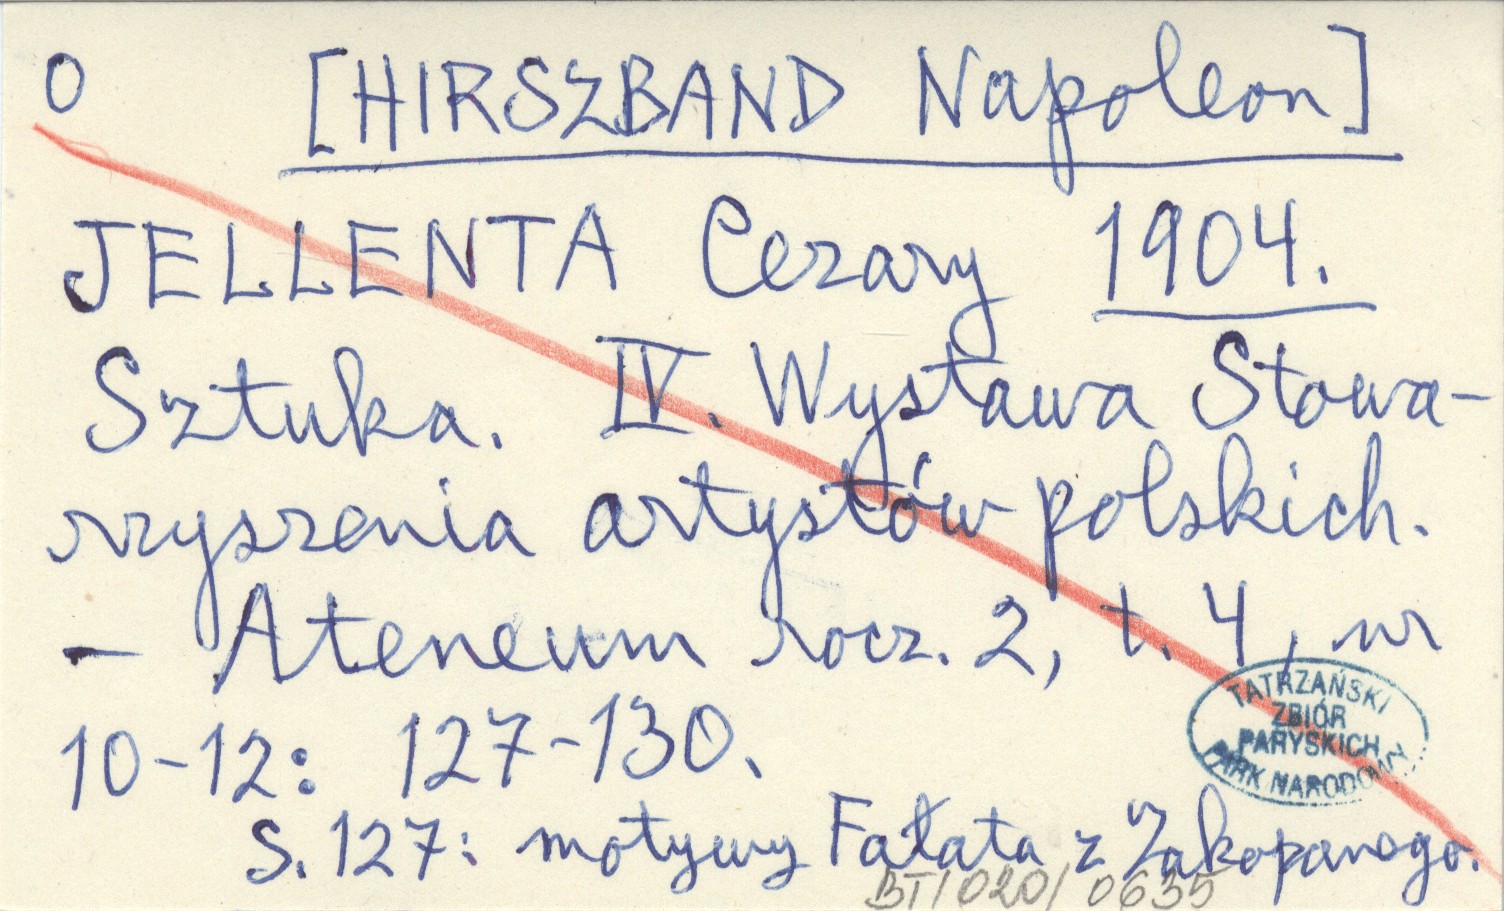 O [HIRSZBAND Napoleon]
JELLENTA Cezary 1904.
Sztuka. IV. Wystawa Stowa-
rzyszenia artystów polskich.
- Ateneum rocz. 2, t. 4, nr
10-12: 127-130.
S. 127: motywy Fałata z Zakopanego.
TATRZAŃSKI
ZBIÓR
PARYSKICH
PARK NARODOWY
BT/020/0635